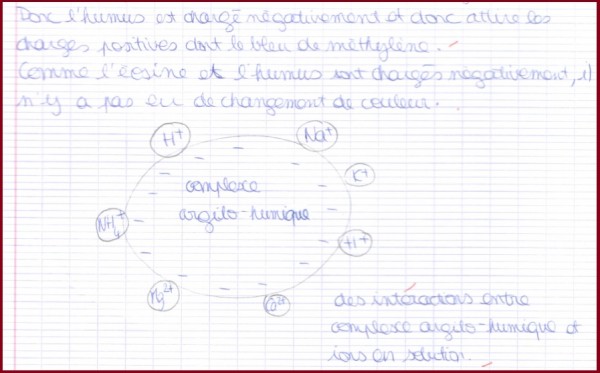 Donc l'humus est chargé négativement et donc attire les
charges positives dont le bleu de méthylène.
Comme l'éosine et l'humus sont chargés négativement, il
n'y a pas eu de changement de couleur.
H+
Na+
K+
complexe
argilo-humique
NH4+
H+
Mg2+
Ca2+
des intéractions entre
complexe argilo-humique et
ions en solution.